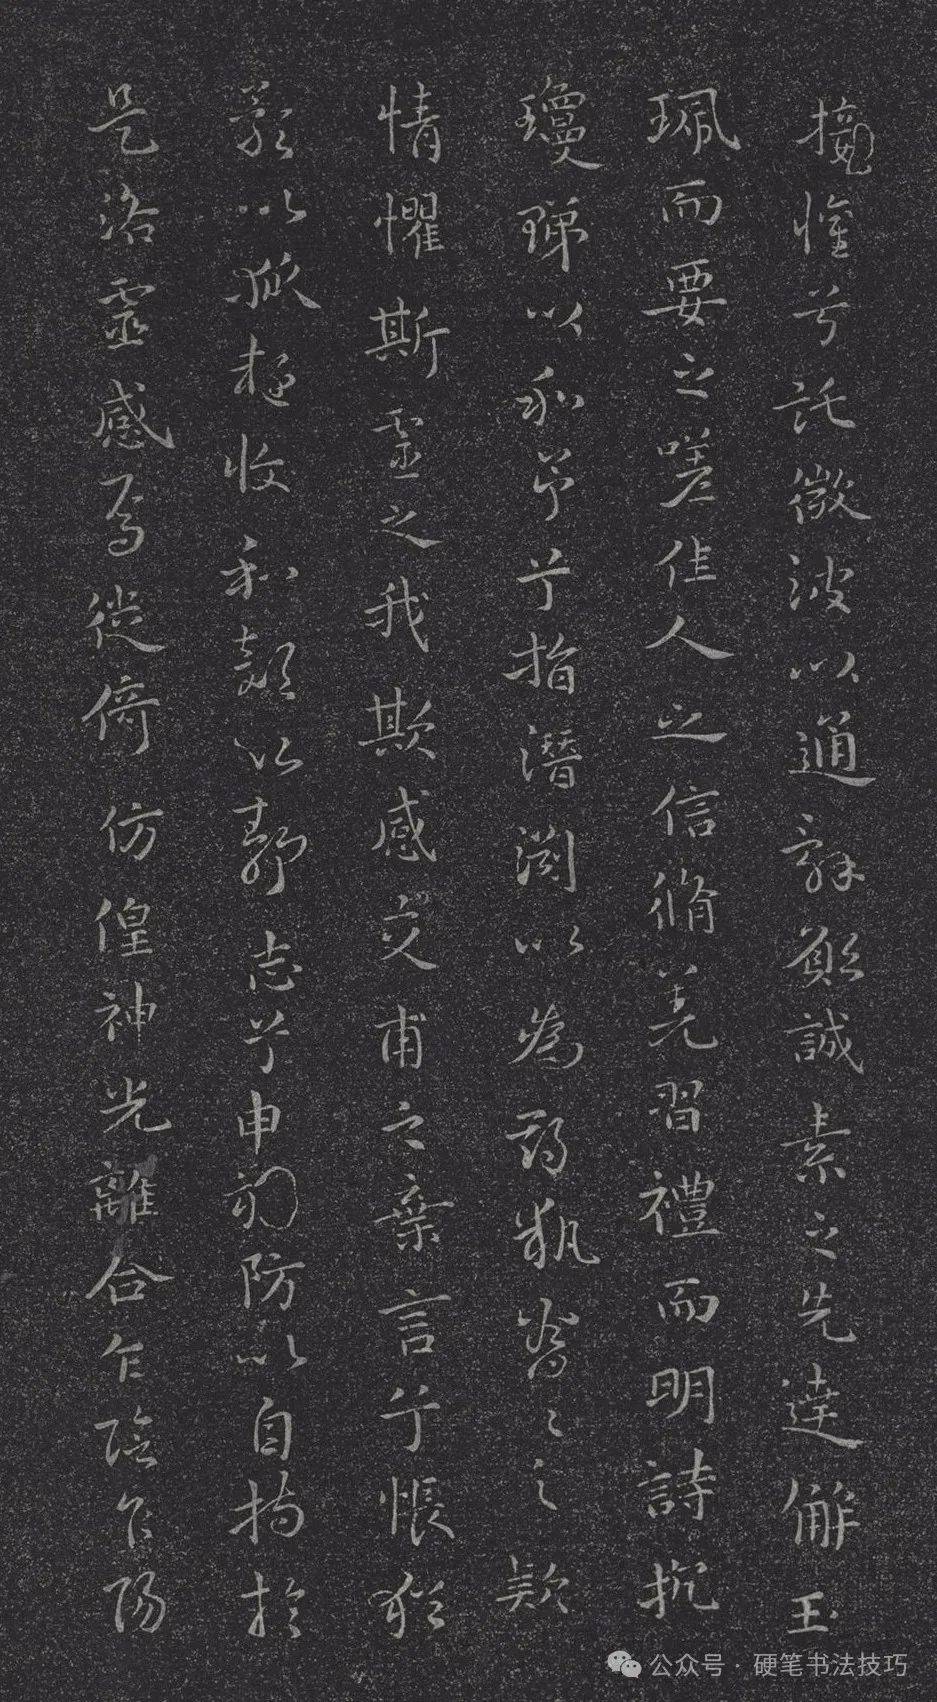 接懽兮託微波以通辭願誠素之先達解玉
珮而要之嗟佳人之信脩羌習禮而明詩抗
瓊珶以和予兮指潛淵以為期執眷〻之款
情懼斯靈之我欺感交甫之棄言兮悵猶
豫以狐疑收和顏以靜志兮申禮防以自持於
是洛靈感焉徙倚仿偟神光離合乍陰乍陽
公众号 · 硬笔书法技巧